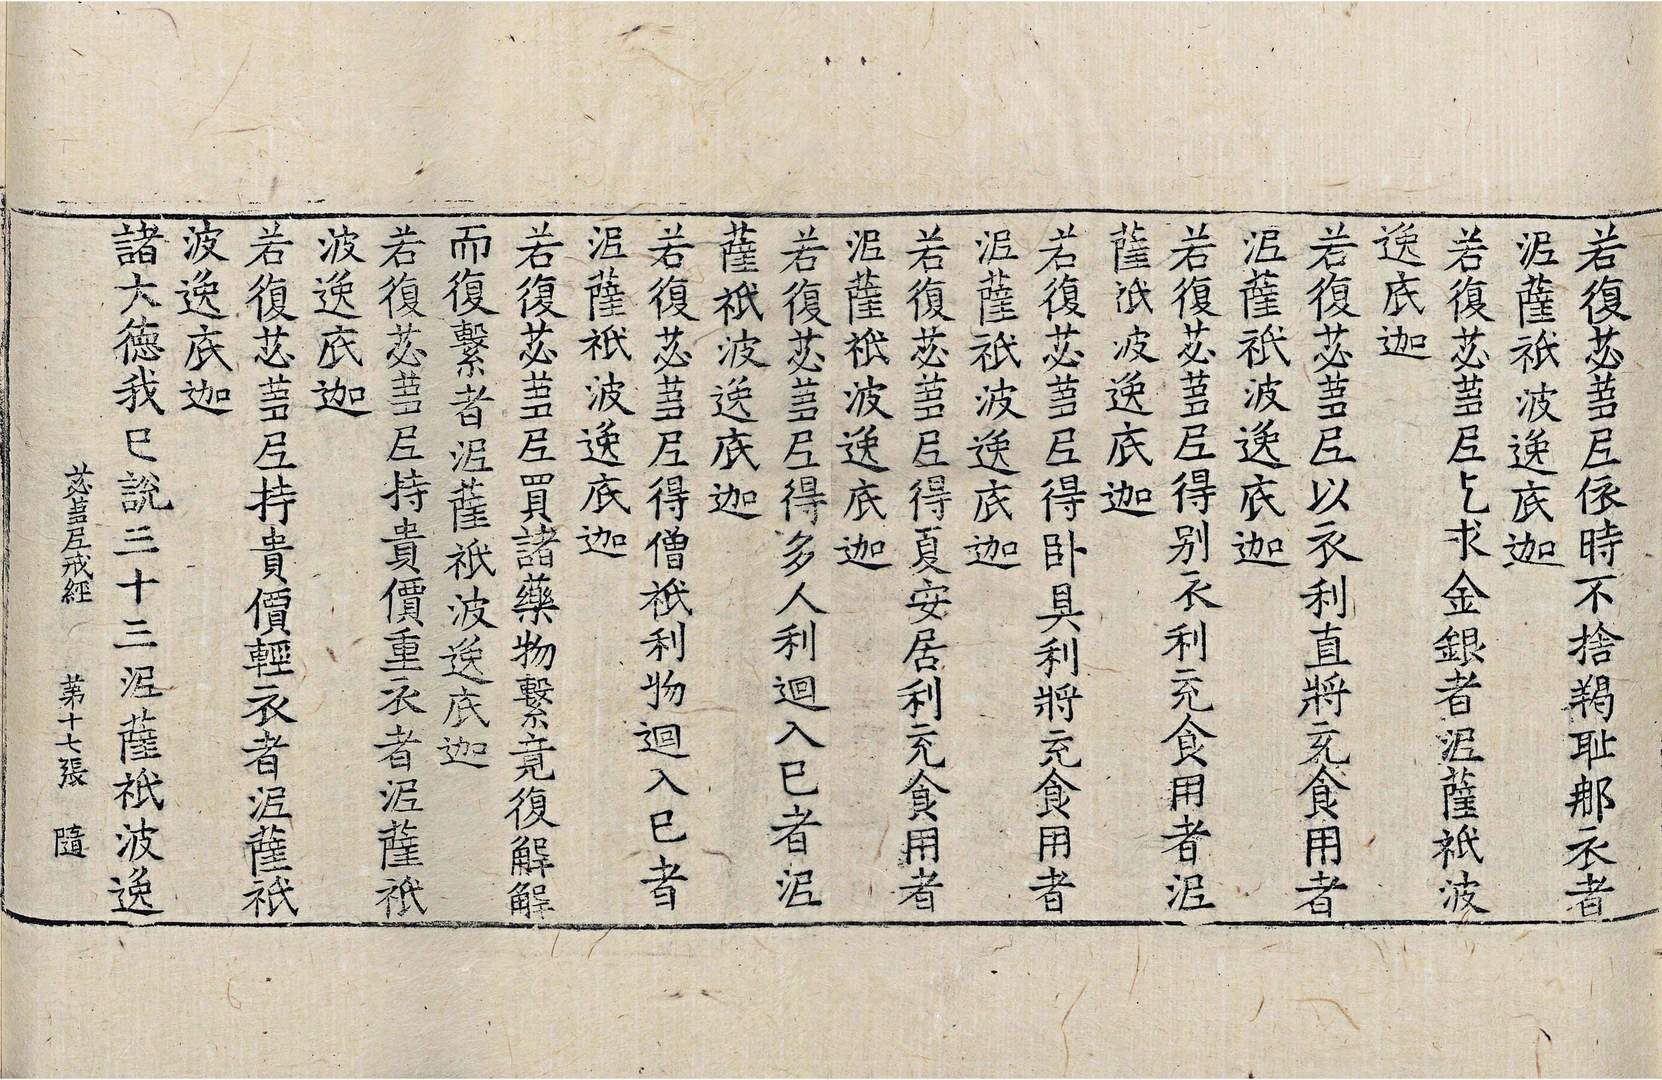 若復苾蒭尼依時不捨羯耻那衣者
泥薩祇波逸底迦
若復苾蒭尼乞求金銀者泥薩祇波
逸底迦
若復苾蒭尼以衣利直將充食用者
泥薩祇波逸底迦
若復苾蒭尼得別衣利充食用者泥
薩祇波逸底迦
若復苾蒭尼得卧具利將充食用者
泥薩祇波逸底迦
若復苾蒭尼得夏安居利充食用者
泥薩祇波逸底迦
若復苾蒭尼得多人利迴入已者泥
薩祇波逸底迦
若復苾蒭尼得僧祇利物迴入已者
泥薩祇波逸底迦
若復苾蒭尼買諸藥物繫竟復解解
而復繫者泥薩祇波逸底迦
若復苾蒭尼持貴價重衣者泥薩祇
波逸底迦
若復苾蒭尼持貴價輕衣者泥薩祇
波逸底迦
諸大德我已說三十三泥薩祇波逸
苾蒭尼戒經 第十七張 隨